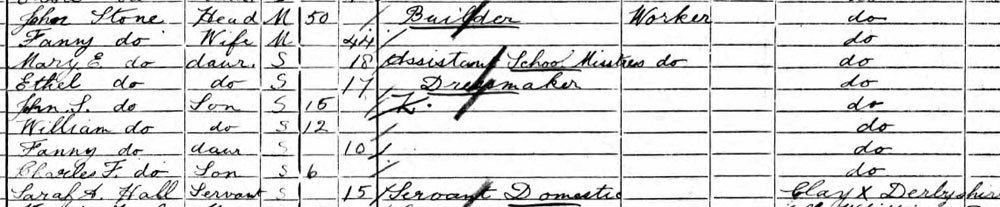 John Stone Head M 50 Builder Worker do
Fanny do Wife M 44 do
Mary E. do daur. S 18 Assistant School Mistress do do
Ethel do do S 17 Dressmaker do
John S. do Son S 15 do
William do do S 12 do
Fanny do daur S 10 do
Charles F. do Son S 6 do
Sarah A. Hall Servant S 15 Servant Domestic Clay X Derbyshire